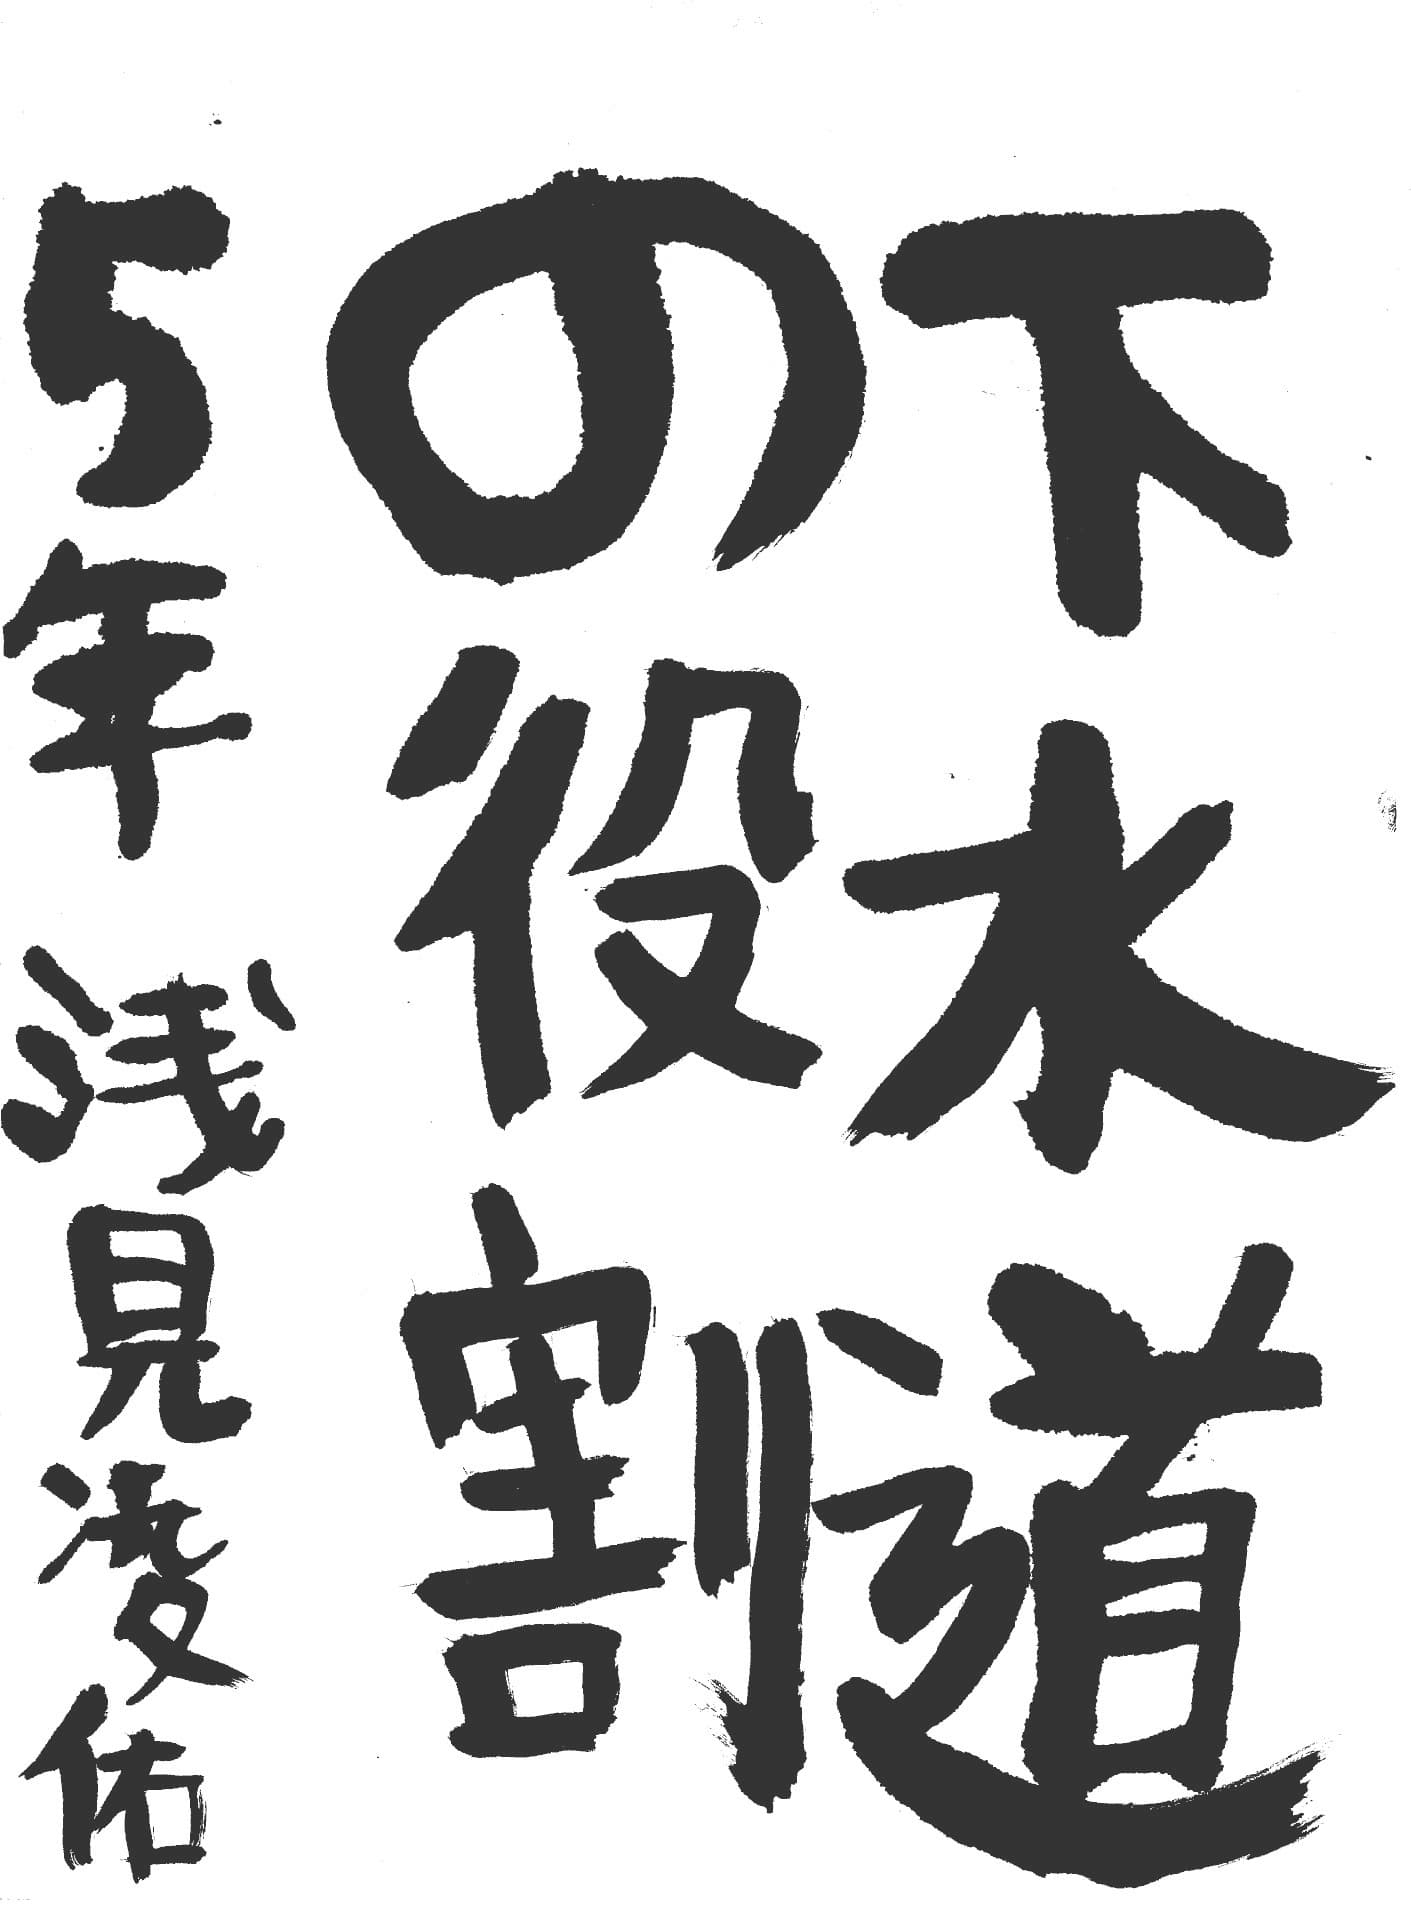 下水道
の役割
5年 浅見凌佑